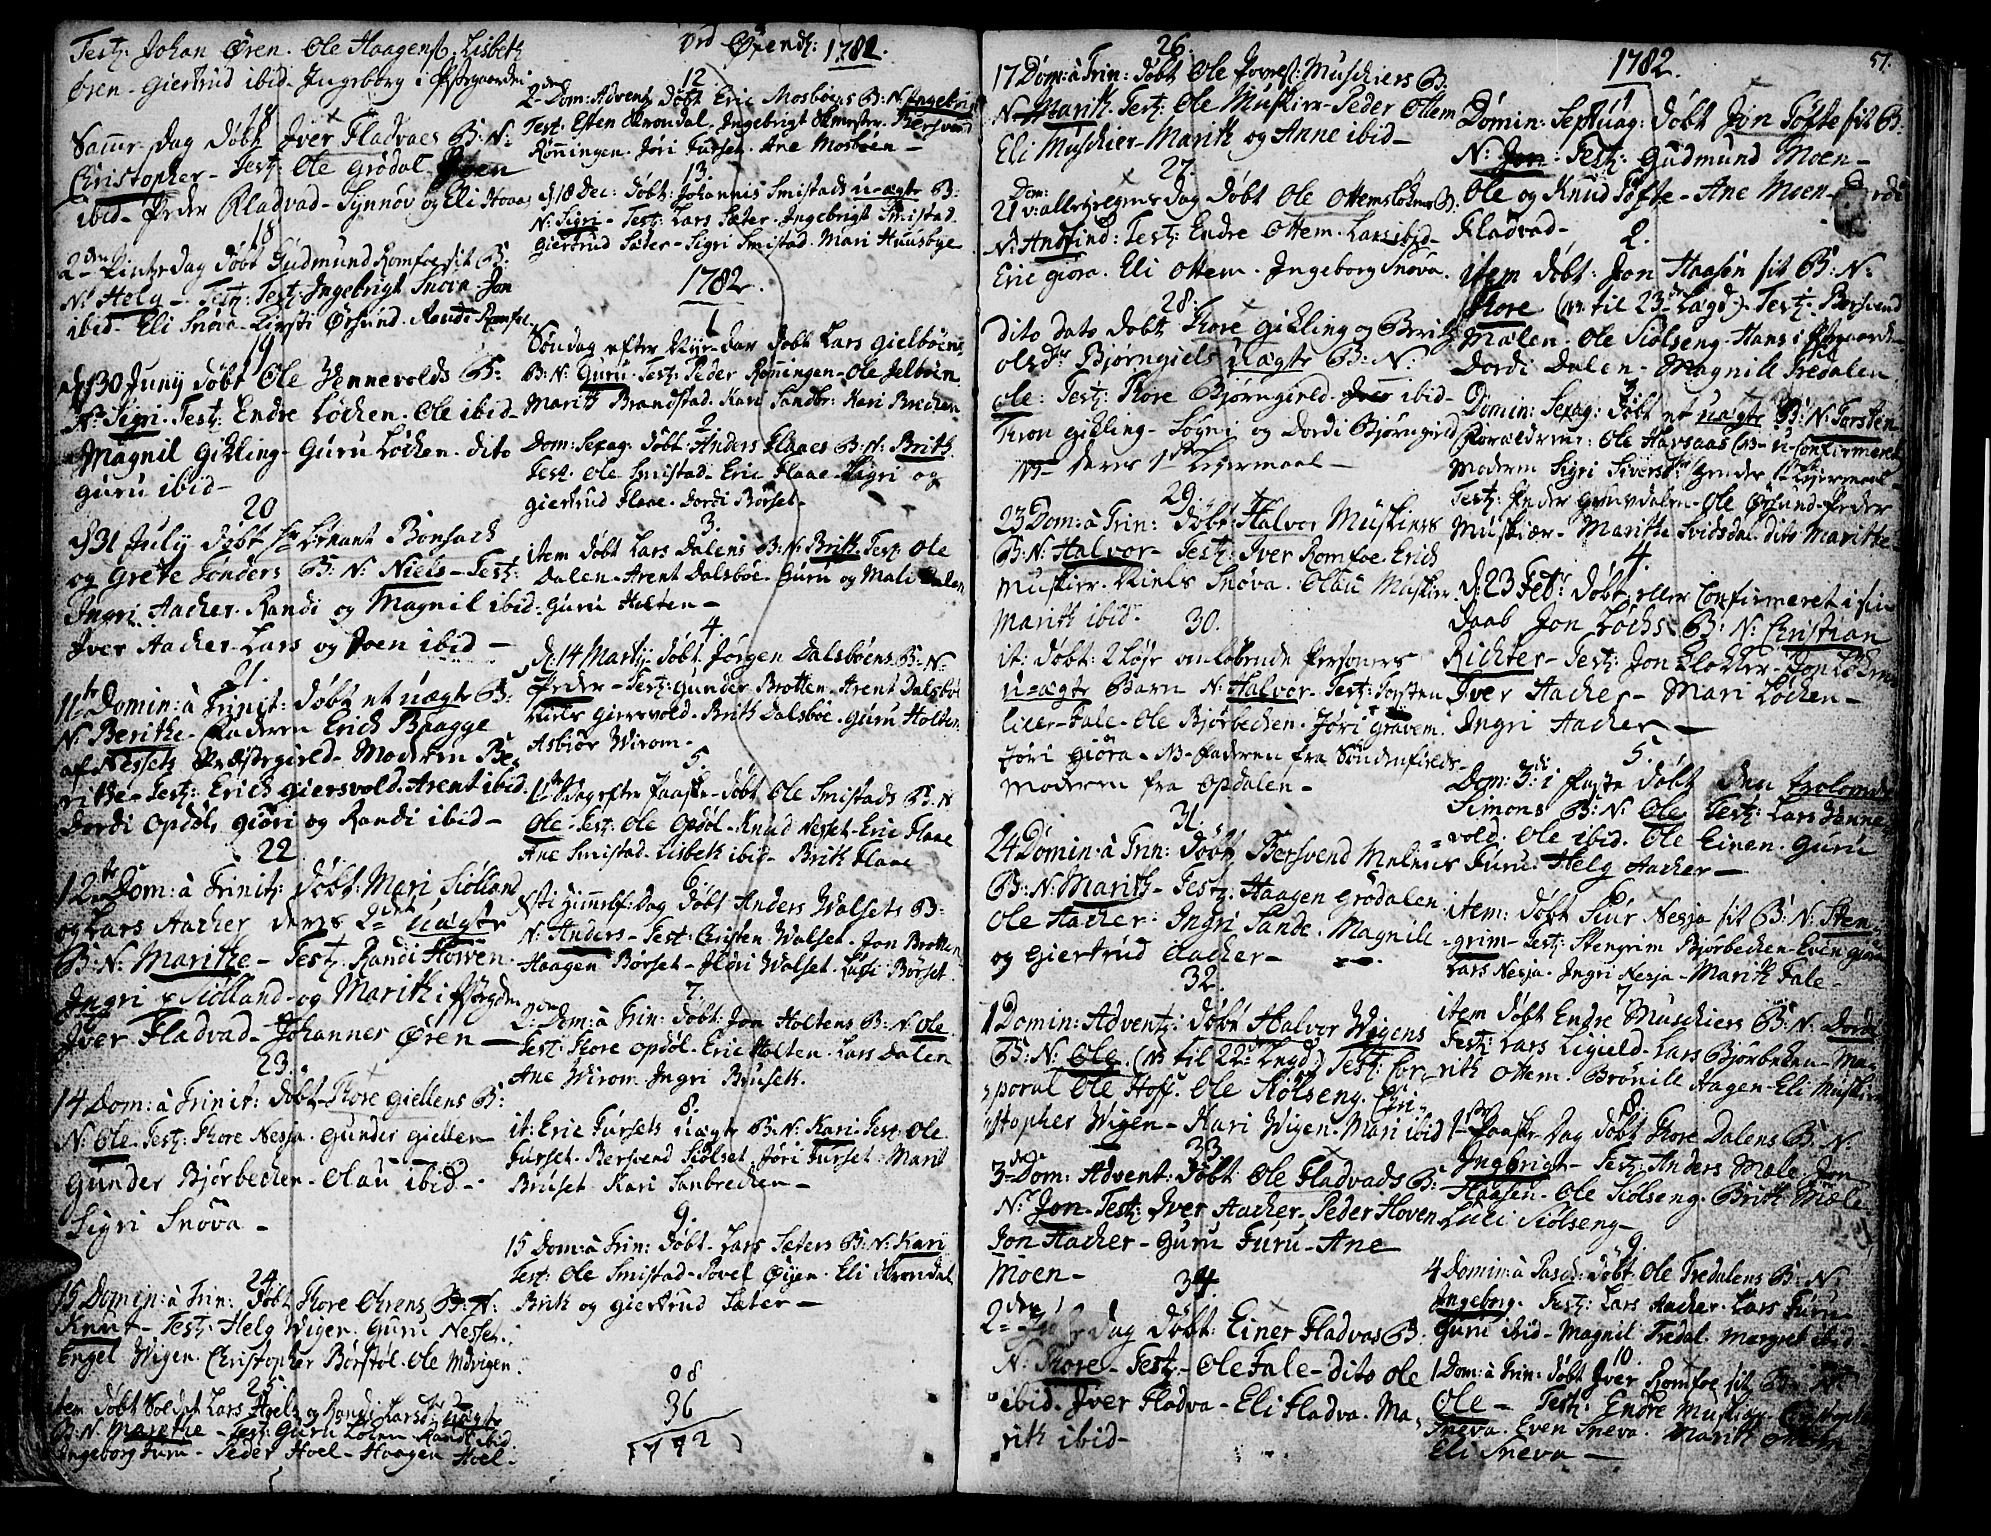 Test: Johan Øren. Ole Haagens. Lisbeth
Øren - Giertrud ibid - Ingeborg i Præstegaarden
18
Samme Dag døbt Iver Fladvaes B: N:
Christopher - Test: Ole Grødal - Joen
ibid - Peder Fladvad - Synnøv og Eli Hoaas
18
2den Pintze Dag døbt Gudmund Romfoe sit B:
N: Helg - Test: Ingebrigt Snøva Jon
ibid - Eli Snøva - Kirsti Øhsund. Randi Romfoe
19
d. 30 Juny døbt Ole Jennevolds B:
N: Sigri. Test: Endre Løchen. Ole ibid
Magnil Gikling - Guru Løchen. dito
Guru ibid -
20
d 31 July døbt Lieutenant Bonsach
og Grete Tønders B: N: Niels - Test:
Ingri Aacher. Randi og Magnil ibid:
Iver Aacher - Lars og Joen ibid -
21
11te Domin: à Trinit: døbt et uægte B:
N: Berithe - Faderen Erich Bragge
af Nessets Præstegield - Moderen Be-
rithe - Test: Erich Giersvold. Arent ibid.
Dordi Opdøl, Giøri og Randi ibid -
22
12te Dom: à Trinit: døbt: Mari Siølland
og Lars Aacher deres 2det uægte
B: N: Marithe - Test: Randi Howen.
Ingri Siølland - og Marith i Pstgrden
Iver Fladvad - Johannes Øren -
23.
14 Dom: à Trinit: døbt Thore Giellens B:
N: Ole. Test: Thore Nesja. Gunder Giellen
Gunder Bjørbechen - Olau ibid -
Sigri Snøva -
24
15 Domin: à Trin: døbt Thore Ørens B: N:
Knut - Test: Helg Wigen. Guru Nesset.
Engel Wigen. Christopher Børstøl. Ole Wigen
25
item døbt Soldat Lars Hoels og Randi Larsdr uægte
B. N. Marethe - Test: Guru Løken - Randi ibid.
Ingeborg Furu - Peder Hoel - Haagen Hoel -
Ved Øxendl: 1781.
12
2den Dom: Advent døbt Eric Mosbøens B: N: Ingebrigt
Test: Esten Strøndal. Ingebrigt Bersvend
Rønningen. Jøri Furset. Ane Mosbøen -
13.
d 18 Dec: døbt: Johannis Smistads u-ægte B:
N: Sigri - Test: Lars Sæter - Ingebrigt Smistad.
Giertrud Sæter - Sigri Smistad. Mari Huusbye
1782.
1
Søndag efter Nyt-aar døbt Lars Gielbøens
B: N: Guru - Test: Peder Rønningen - Ole Jelbøen
Marith Brandstad. Kari Sandbr: Kari Brechen
2.
Dom: Sexag: døbt: Anders Flaaes B: N: Brith.
Test: Ole Smistad. Eric Flaae - Sigri og
Giertrud Flaae - Dordi Børset -
3.
item døbt Lars Dalens B: N: Brith. Test: Ole
Dalen - Arent Dalsbøe - Guru og Mali Dalen
Guru Holten -
4.
d: 14 Martij døbt Jørgen Dalsbøens B: N:
Peder - Test: Gunder Brotten - Arent Dalsbøe
Niels Giersvold. Brith Dalsbøe. Guru Holten.
Asbiør Wirom -
5.
1te S.Dag efter Paaske døbt Ole Smistads B: N:
Ole - Test: Ole Opdøl - Knud Nesset - Eric Flaae
Ane Smistad. Lisbeth ibid - Brith Flaae
6.
Xsti Himmelf: Dag døbt Anders Walsets B:
N: Anders - Test: Christen Walset. Jon Brotten
Haagen Børset - Jøri Walset. Børset.
7.
2den Dom: à Trin: døbt: Jon Holtens B: N: Ole
Test: Thore Opdøl - Eric Holten - Lars Dalen
Ane Wirom - Ingri Bruseth.
8.
it: Eric Fursets uægte B: N: Kari. Test: Ole
Furset - Bersvend Siølset, Jøri Furset - Marit
Bruset Kari Sanbrechen -
9.
15 Dom: à Trin: døbt Lars Sæters B: N: Kari
Test: Ole Smistad - Povel Øyen. Eli Strøndal
Brith og Giertrud Sæter -
08
36
26.
17 Dom: à Trin: døbt Ole Joves: Muschiers B.
N. Marith. Test: Ole Muskier - Peder Ottem
Eli Muschier - Marith og Anne ibid -
27.
21 Dom: v: alle Helgens Dag døbt Ole Ottemsløkens B.
N: Andfind: Test: Endre Ottem. Lars ibid -
Eric Giøra. Eli Ottem. Ingeborg Snøva.
28.
dito dato døbt Thore Gikling og Brith
Olsdtr Bjørngiels uægte B: N:
Ole: Test: Thore Bjørngield - ibid -
Tron Gikling - Sogni og Dordi Bjørngield
NB deres 1te Leiermaal -
29.
23 Dom: à Trin: døbt Halvor Muskiers
B: N: Halvor - Test: Iver Romfoe. Erich
Muskier. Niels Snøva. Olau Muskier.
Marith ibid.
30.
it: døbt: 2 Løse omløbende Personers
u=ægte Barn N: Halvor - Test: Torsten
- Fale - Ole Bjørbechen - Jøri Gravem.
Jøri Giøra. NB Faderen fra Søndenfields.
Moderen fra Opdalen -
31.
24 Domin: à Trin: døbt Bersvend Melens
B: N: Marith - Test: Haagen Grødalen
Ole Aacher: Ingri Sande. Magnill
og Giertrud Aacher -
32.
1 Domin: Advent: døbt Halvor Wigens
B: N: Ole. (NB til 22de Lægd) Test: Cor-
poral Ole Hoff. Ole Siølseng. Chri-
stopher Wigen - Kari Wigen. Mari ibid
33.
3de Dom: Advent: døbt Ole Fladvads B:
N: Jon - Test: Iver Aacher. Peder Hoven
Jon Aacher - Guru Furu - Ane
Moen -
34.
2den Jule Dag døbt: Einer Fladvas B:
N: Thore - Test: - Ole Fale - dito Ole
ibid. Iver Fladva - Eli Fladva. Ma-
rith ibid -
1782.
57.
1
Domin: Septuag: døbt Jon Tøfte sit B:
N: Jon - Test: Gudmund Moen -
Ole og Knud Tøfte - Ane Moen - Dordi
Fladvad -
2.
item døbt: Jon Haasen sit B: N:
Thore (NB til 23de Lægd). Test: Bersvend
Mælen. Ole Siølseng - Hans i Præstegaarden
Dordi Dalen - Magnill Tredalen
3
Domin: Sexag: døbt et uægte B: N: Torsten
Forældrene: Ole Harsaas (NB u-Confirmeret)
Moderen Sigri Siversdtr hendes 1te Leiermaal -
Test: Peder - Ole Øhsund - Peder
Muskier - Marithe Svisdal - dito Marithe -
4.
d: 23 Febr: døbt eller Confirmeret i sin
Daab Jon Løchs. B: N: Christian
Richter - Test: Jon Klokker - Jon Løken
Iver Aacher - Mari Løchen -
Ingri Aacher -
5.
Dom: 3: i Faste døbt den trolovede
Simons B: N: Ole Test: Lars Jenne-
vold. Ole ibid. Ole Einen. Guru
Furu. Helg Aacher -
6
item: døbt Siur Nesja sit B: N: Sten-
grim - Test: Stengrim Bjørbechen - Even Giøra
Lars Nesja. Ingri Nesja - Marith Fale -
7
item døbt Endre Muschiers B: N: Dordi
Test: Lars Ligield - Lars Bjørbechen - Ma-
rith Ottem. Brønill Hagen - Eli Muskier
8.
1te Paaske Dag døbt Thore Dalens B: N:
Ingebrigt - Test: Anders Mæle Jon
Haasen - Ole Siølseng. Brith Mæle
Siølseng -
9.
4 Domin: à Pasch: døbt Ole Tredalens B: N:
Ingeborg. Test: Lars Aacher. Lars Furu
Guru ibid - Magnil Tredal. Margret ibid
10.
1 Dom: à Trin: døbt Iver Romfoe sit B: N:
Ole - Test: Endre Muskier.
Snøva. Even Snøva. Marith
Eli Snøva -